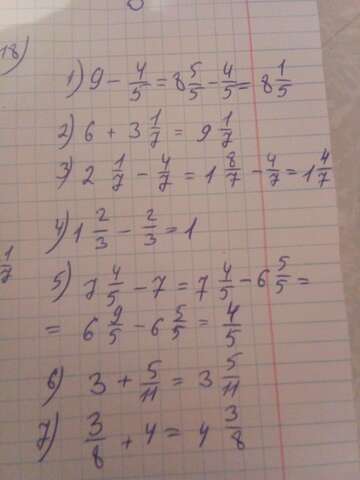 18)
1) 9 - 4/5 = 8 5/5 - 4/5 = 8 1/5
2) 6 + 3 1/7 = 9 1/7
3) 2 1/7 - 4/7 = 1 8/7 - 4/7 = 1 4/7
4) 1 2/3 - 2/3 = 1
1/7
5) 7 4/5 - 7 = 7 4/5 - 6 5/5 =
= 6 9/5 - 6 5/5 = 4/5
6) 3 + 5/11 = 3 5/11
7) 3/8 + 4 = 4 3/8